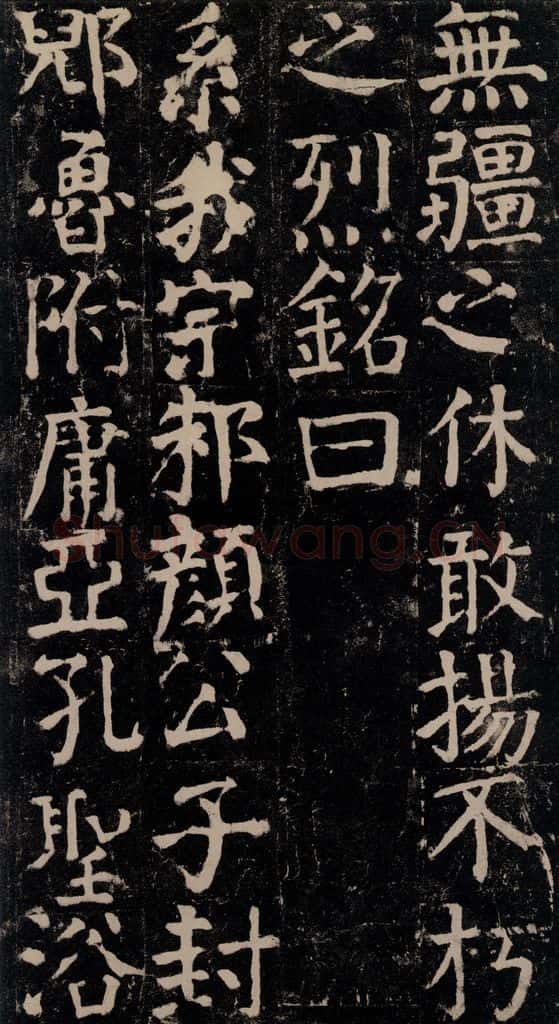 無疆之休敢揚不朽
之烈銘曰
系我宗邾顏公子封
郳魯附庸亞孔聖浴
Shufawang.CN